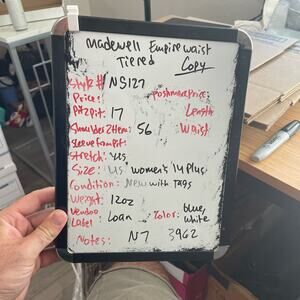 Madewell Empire waist
Tiered Copy
Style # NS127
Price: Poshmark Price:
Pit2pit: 17 Length:
Shoulder2Hem: 56 Waist:
Sleeve from Pit:
Stretch: yes
Size: US women's 14 Plus
Condition: New with Tags
Weight: 12oz
Vendoo Label Loan Color: blue, white
Notes: N7 3962